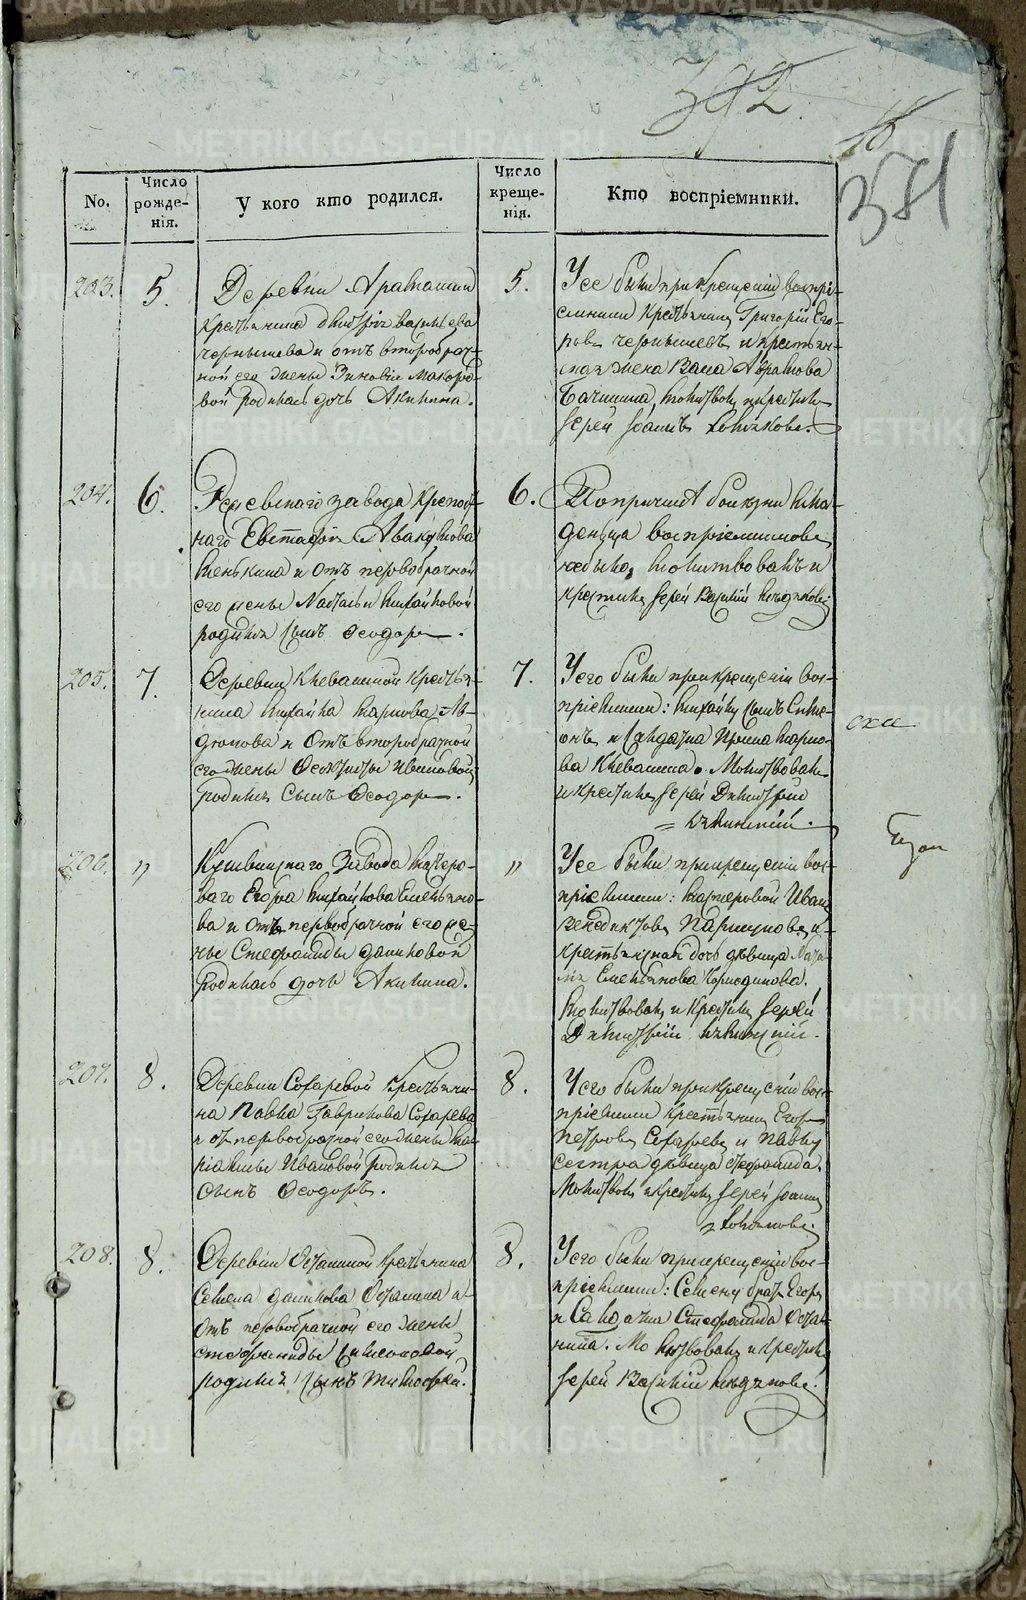 392
16
371
No.
Число рожде-нія.
У кого кто родился.
Число креще-нія.
Кто воспріемники.
203.
5.
Деревни Арамашки
крестьянина Дмитрія Васильева
чернышева и отъ второбрач-
ной его жены Зиновіи Макаро-
вой родилась дочь Акилина.
5.
У сее были при крещеніи воспрі-
емники крестьянинъ Григорій Его-
ровъ чернышевъ и крестьян-
ская жена
молитвовалъ и крестилъ
Іерей Іоаннъ
204.
6.
Режевскаго завода крепост-
наго Евстафія Авакумова
и отъ первобрачной
его жены Настасьи Михайловой
родился сынъ Ѳеодоръ.
6.
По причине болезни мла-
денца воспріемниковъ
небыло, молитвовалъ и
крестилъ Іерей Василій
205.
7.
Деревни Клевакиной крестья-
нина Михайла Карпова Ав-
дюкова и отъ второбрачной
его жены Ивановой
родился сынъ Ѳеодоръ.
7.
У сего были при крещеніи вос-
пріемники: Михайлы сынъ Симе-
онъ и Карпо-
ва Клевакина. Молитвовалъ
и крестилъ Іерей Димитрій
206.
"
Кушвинскаго Завода мастеро-
ваго Егора Михайлова Емельяно-
ва и отъ первобрачной его же-
ны Стефаниды Даниловой
родилась дочь Акилина.
"
У сее были при крещеніи вос-
пріемники: мастеровой Иванъ
Венедиктовъ Паршуковъ и
крестьянская дочь девица
Емельянова
Молитвовалъ и крестилъ Іерей
Димитрій
207.
8.
Деревни Сохаревой крестьяни-
на Павла Гаврилова Сохарева
и отъ первобрачной его жены Ма-
Ивановой родился
сынъ Ѳеодоръ.
8.
У сего были при крещеніи вос-
пріемники крестьянинъ Егоръ
Петровъ Сохаревъ и Павлу
сестра девица Стефанида.
Молитвовалъ и крестилъ Іерей Іоаннъ
208.
8.
Деревни Останиной крестьянина
Семена Данилова Останина и
отъ первобрачной его жены
Стефаниды Симеоновой
родился сынъ Тимофей.
8.
У сего были при крещеніи вос-
пріемники: Семену братъ Егоръ
и Стефанида Оста-
нина. Молитвовалъ и крестилъ
Іерей Василій
METRIKI.GASO-URAL.RU